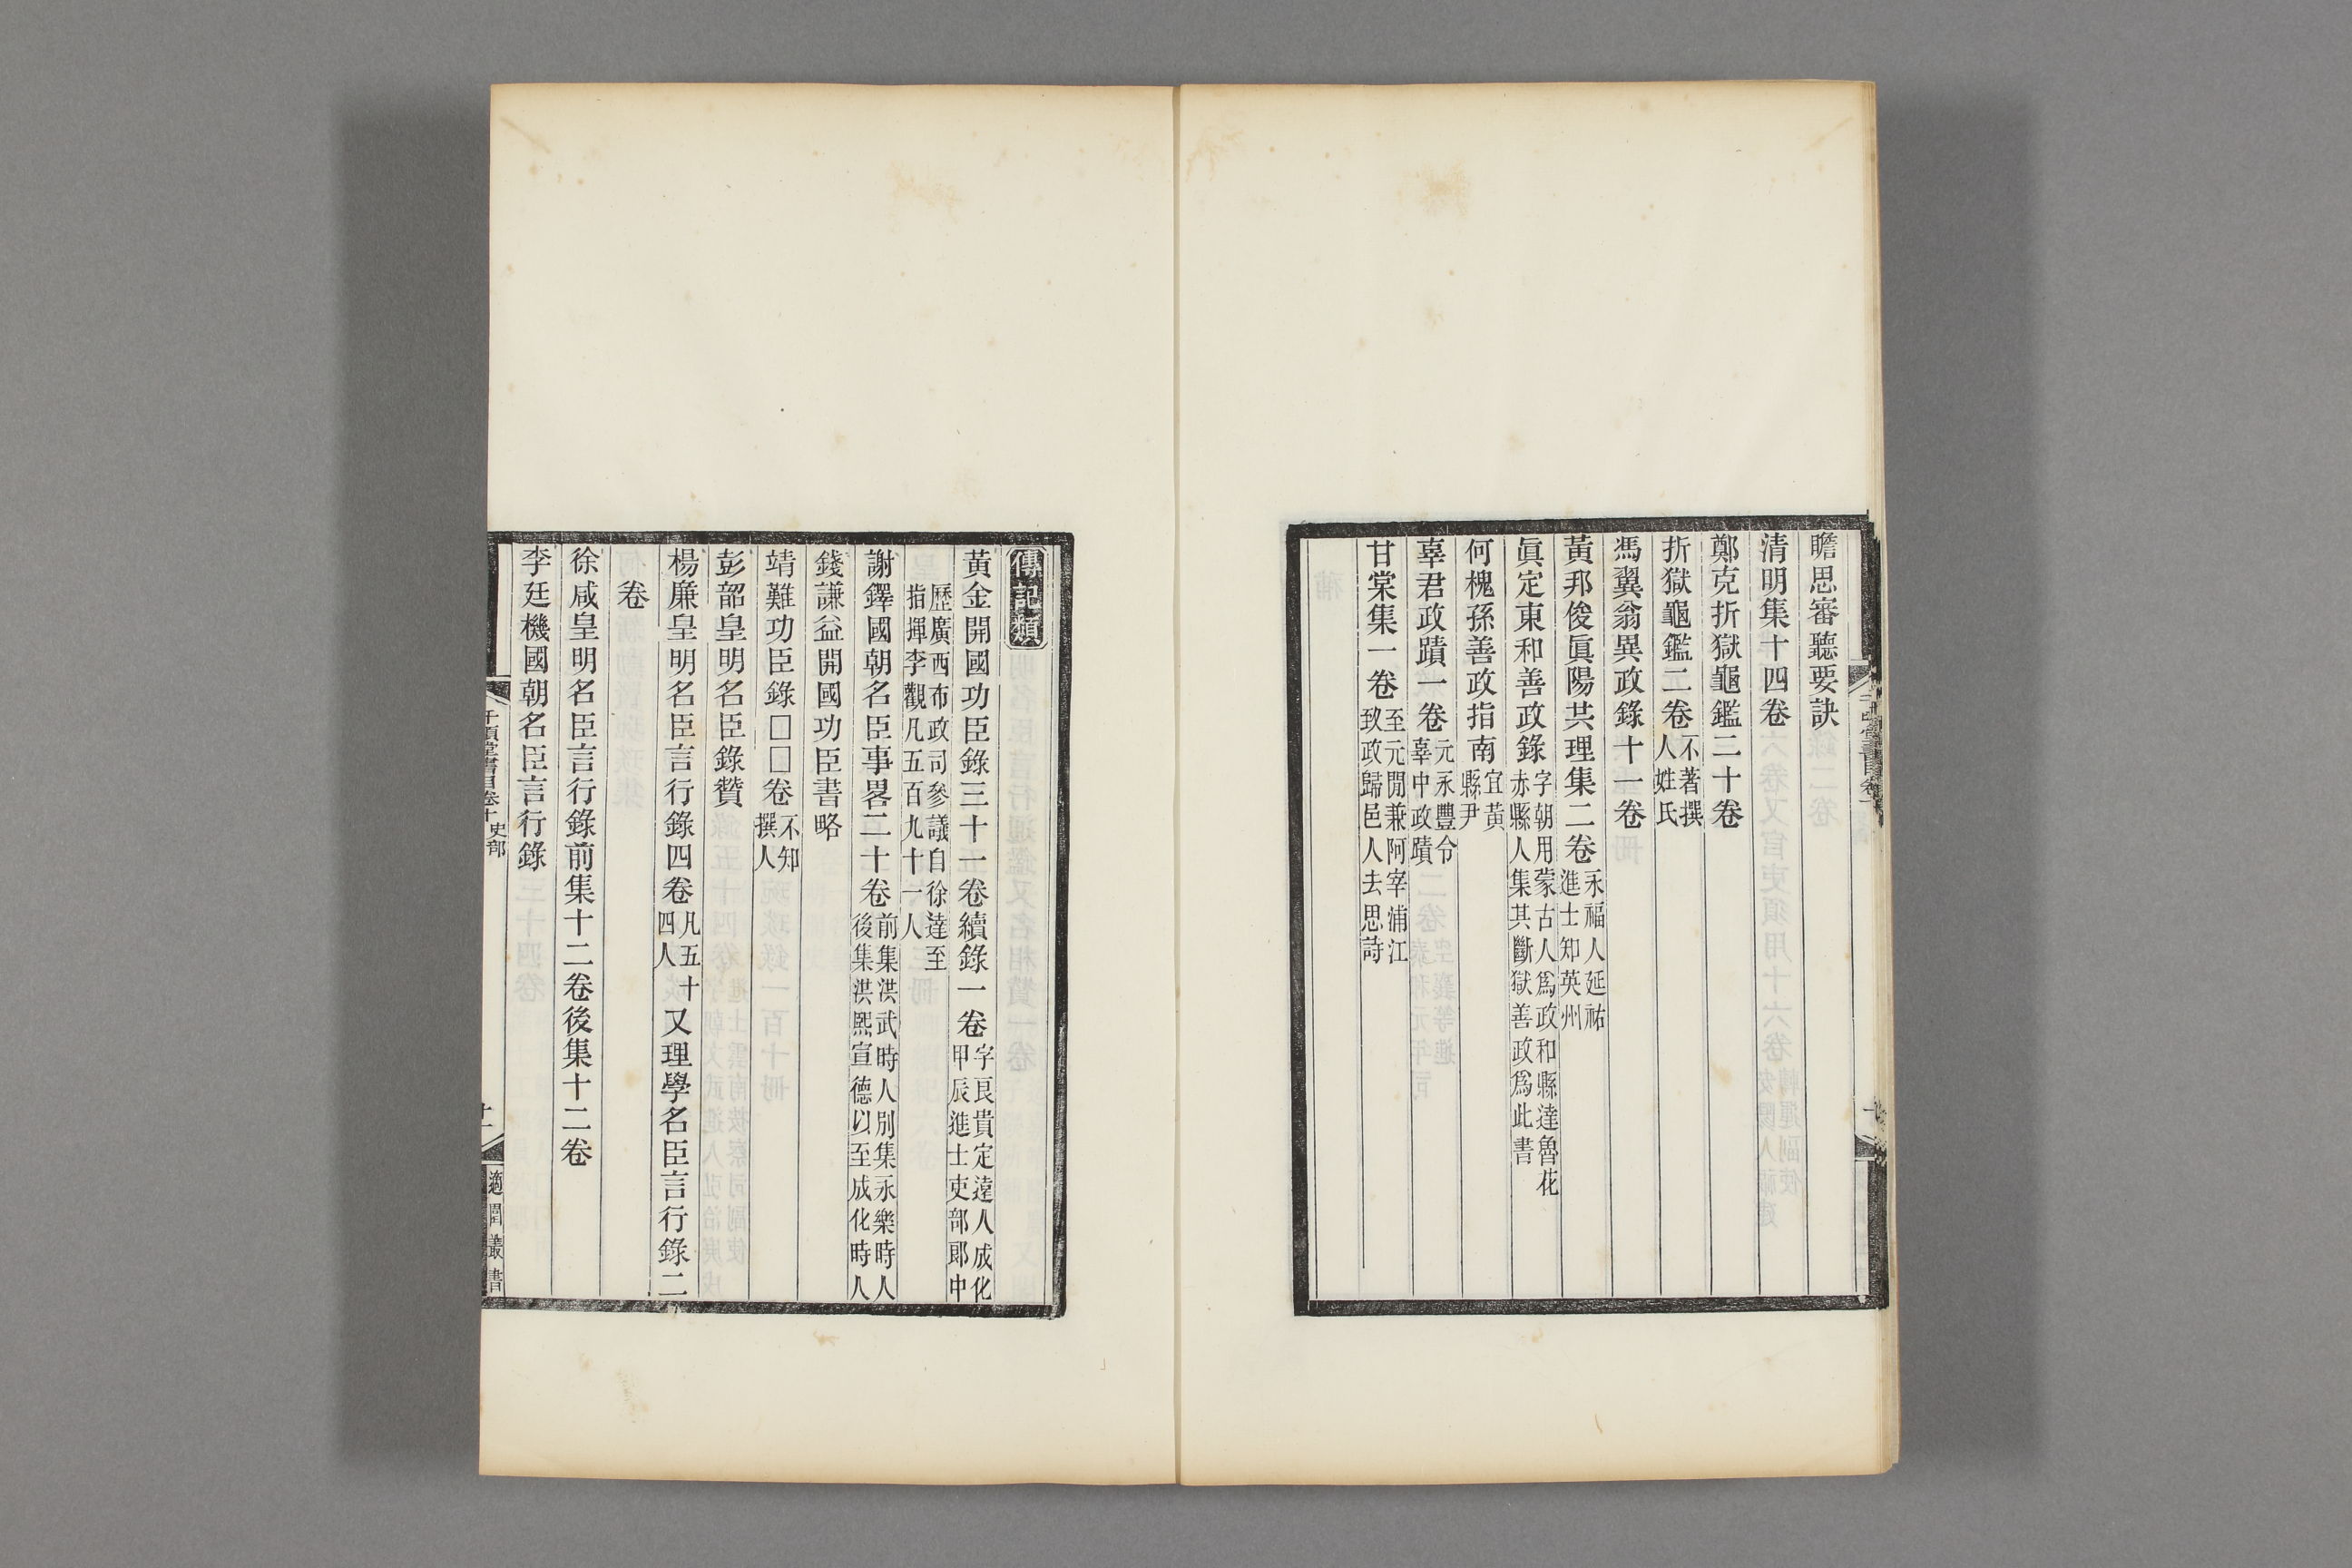 瞻思審聽要訣
清明集十四卷
鄭克折獄龜鑑三十卷
折獄龜鑑二卷不著撰人姓氏
馮翼翁異政錄十一卷
黃邦俊眞陽共理集二卷永福人延祐進士知英州
眞定東和善政錄字朝用蒙古人爲政和縣達魯花赤縣人集其斷獄善政爲此書
何槐孫善政指南宜黃縣尹
辜君政蹟一卷元永豐令辜中政蹟
甘棠集一卷至元閒兼阿宰浦江致政歸邑人去思詩
傳記類
黃金開國功臣錄三十一卷續錄一卷字良貴定遠人成化甲辰進士吏部郎中
歷廣西布政司參議自徐達至指揮李觀凡五百九十一人
謝鐸國朝名臣事畧二十卷前集洪武時人別集永樂時人後集洪熙宣德以至成化時人
錢謙益開國功臣書略
靖難功臣錄□□卷不知撰人
彭韶皇明名臣錄贊
楊廉皇明名臣言行錄四卷凡五十四人又理學名臣言行錄二
卷
徐咸皇明名臣言行錄前集十二卷後集十二卷
李廷機國朝名臣言行錄
千頃堂書目卷十 史部
十一
適園叢書